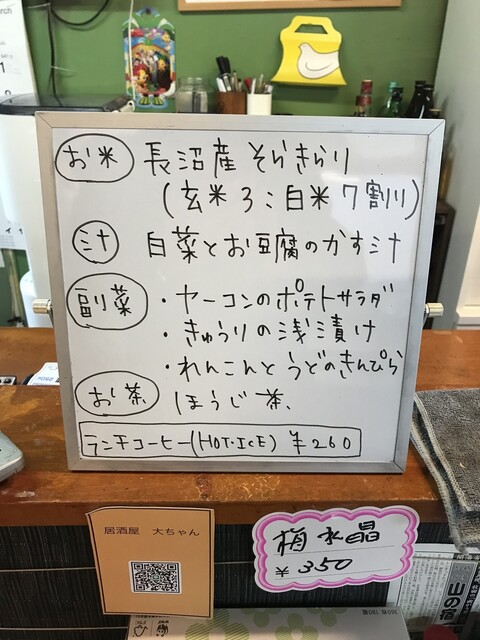 お米 長沼産 そらきらり
(玄米3:白米7割)
汁 白菜とお豆腐のかす汁
副菜 ・ヤーコンのポテトサラダ
・きゅうりの浅漬け
・れんこんとうどのきんぴら
お茶 ほうじ茶、
ランチコーヒー(HOT・ICE) ¥260
居酒屋 大ちゃん
梅水晶
¥350
山の宿